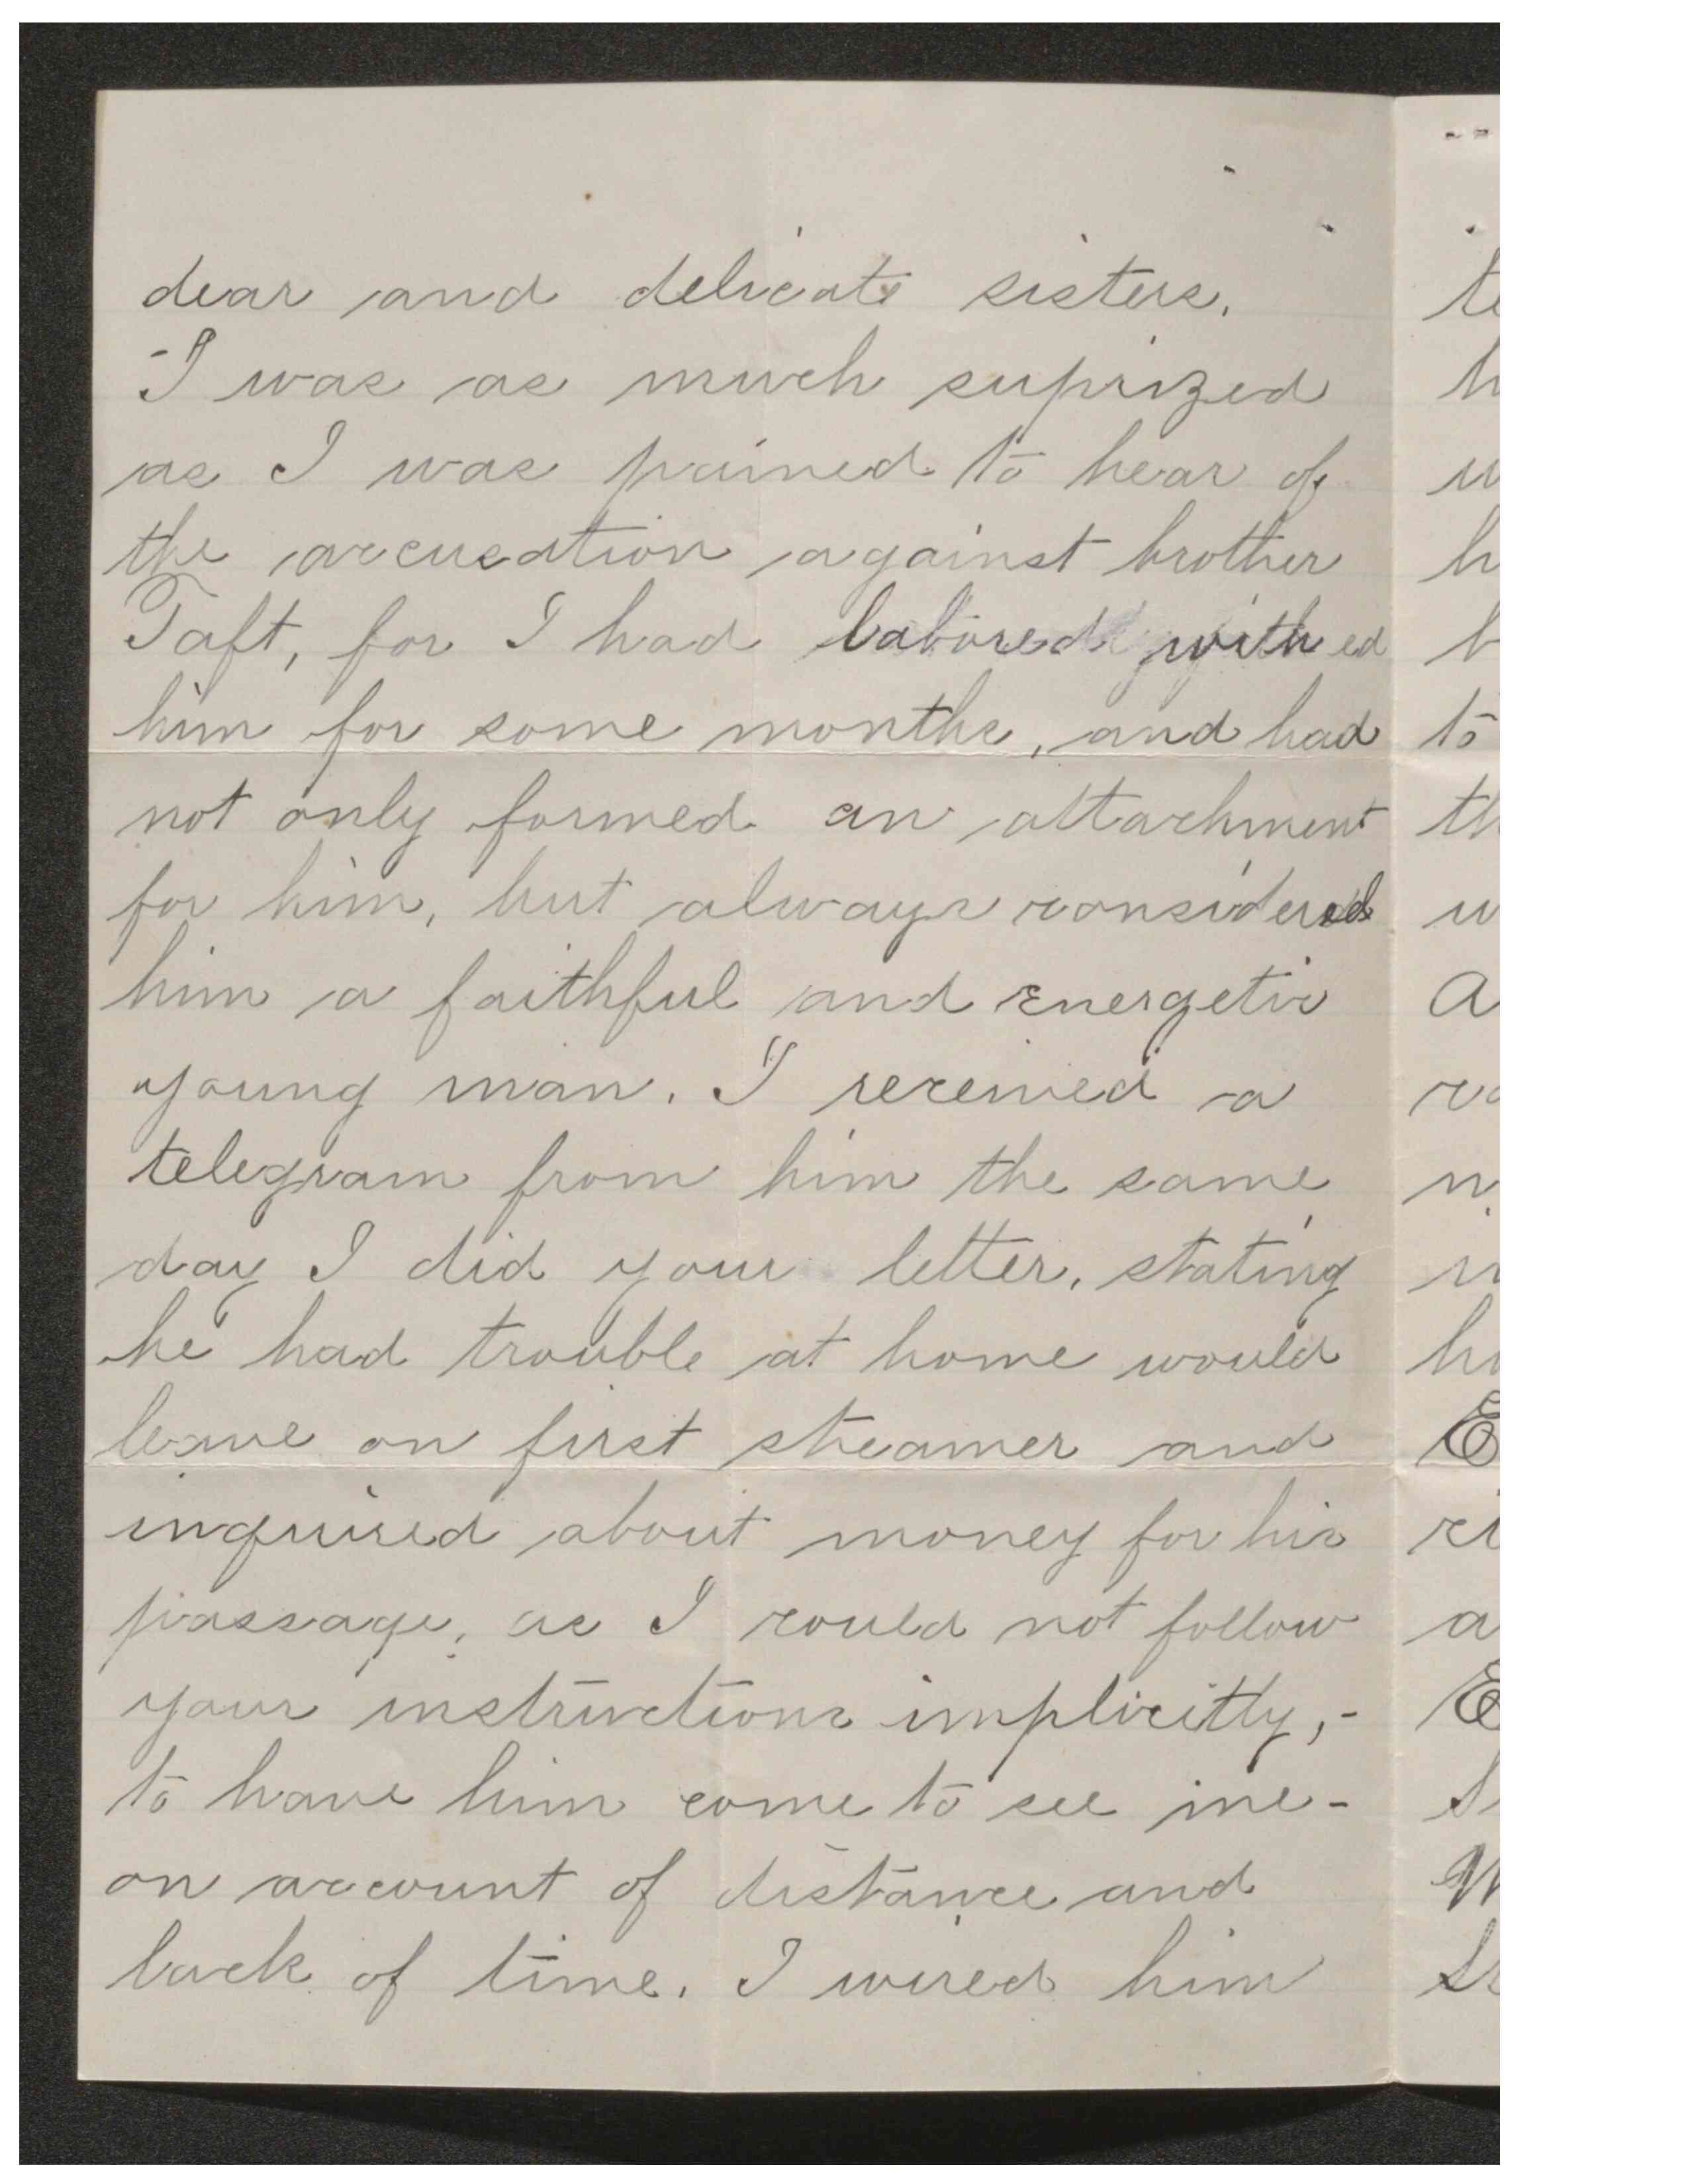 dear and delicate sisters.
I was as much suprized
as I was pained to hear of
the accusation against brother
Taft, for I had labored with ed
him for some months, and had
not only formed an attachment
for him, but always considered
him a faithful and energetic
young man. I received a
telegram from him the same
day I did your letter, stating
he had trouble at home would
leave on first steamer and
inquired about money for his
passage, as I could not follow
your instructions implicitly,-
to have him come to see me-
on account of distance and
lack of time. I wired him